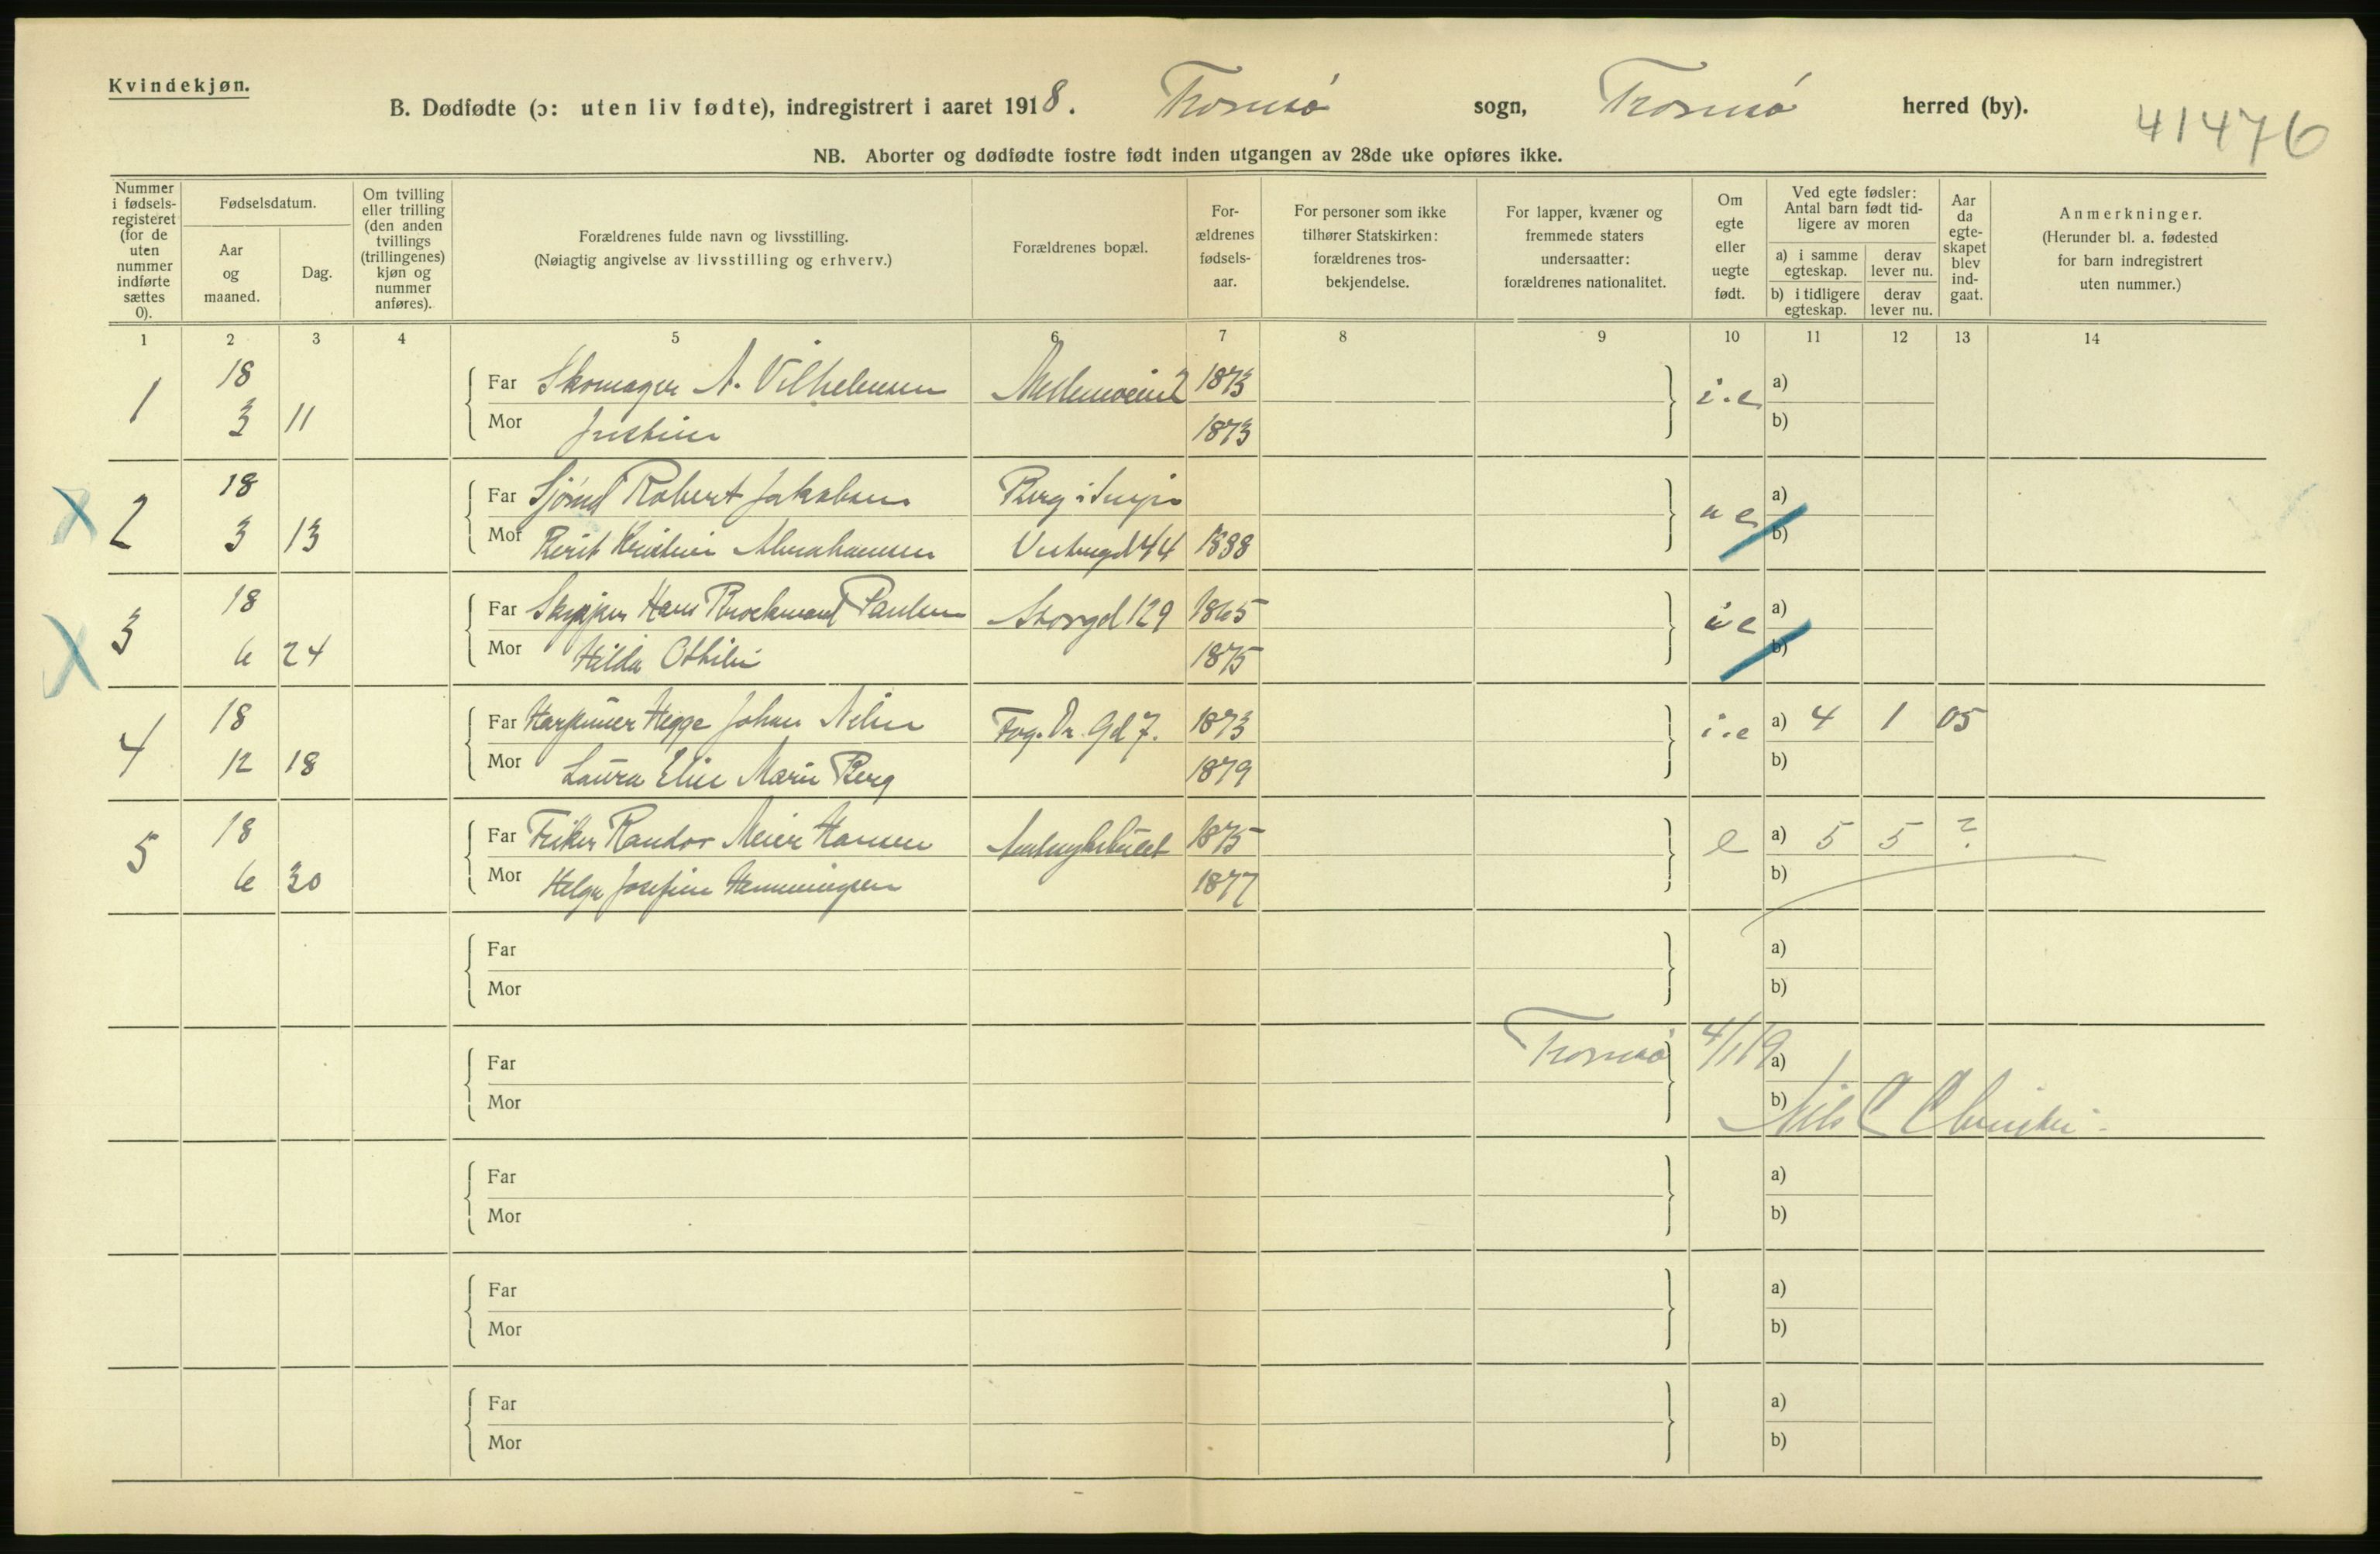 Kvindekjøn.
B. Dødfødte (ɔ: uten liv fødte), indregistrert i aaret 1918. Tromsø sogn, Tromsø herred (by).
41476
NB. Aborter og dødfødte fostre født inden utgangen av 28de uke opføres ikke.
Nummer i fødsels-registeret (for de uten nummer indførte sættes 0).
Fødselsdatum.
Aar og maaned.
Dag.
Om tvilling eller trilling (den anden tvillings (trillingenes) kjøn og nummer anføres).
Forældrenes fulde navn og livsstilling.
(Nøiagtig angivelse av livsstilling og erhverv.)
Forældrenes bopæl.
For-ældrenes fødsels-aar.
For personer som ikke tilhører Statskirken: forældrenes tros-bekjendelse.
For lapper, kvæner og fremmede staters undersaatter: forældrenes nationalitet.
Om egte eller uegte født.
Ved egte fødsler: Antal barn født tid-ligere av moren
a) i samme egteskap.
derav lever nu.
b) i tidligere egteskap.
derav lever nu.
Aar da egte-skapet blev ind-gaat.
Anmerkninger.
(Herunder bl. a. fødested for barn indregistrert uten nummer.)
1 2 3 4 5 6 7 8 9 10 11 12 13 14
1 18 Far Skomager A. Vilhelmsen 1873 i.e a)
3 11 Mor 1873 b)
2 18 Far Robert Jakobsen Berg i u e a)
3 13 Mor Berit Kristine Abrahamsen 44 1888 b)
3 18 Far Skipper Hans Brockmand Paulsen Storgd 129 1865 a)
6 24 Mor Hilda Othilie 1875 b)
4 18 Far Hegge Johan 7. 1873 i.e a) 4 1 05
12 18 Mor Laura Elise Marie Berg 1879 b)
5 18 Far Fisker Randor Meier Hansen 1875 e a) 5 5 ?
6 30 Mor Helga Josefine Henningsen 1877 b)
Far a)
Mor b)
Far Tromsø 4/1 19 a)
Mor b) Nils C
Far a)
Mor b)
Far a)
Mor b)
Far a)
Mor b)